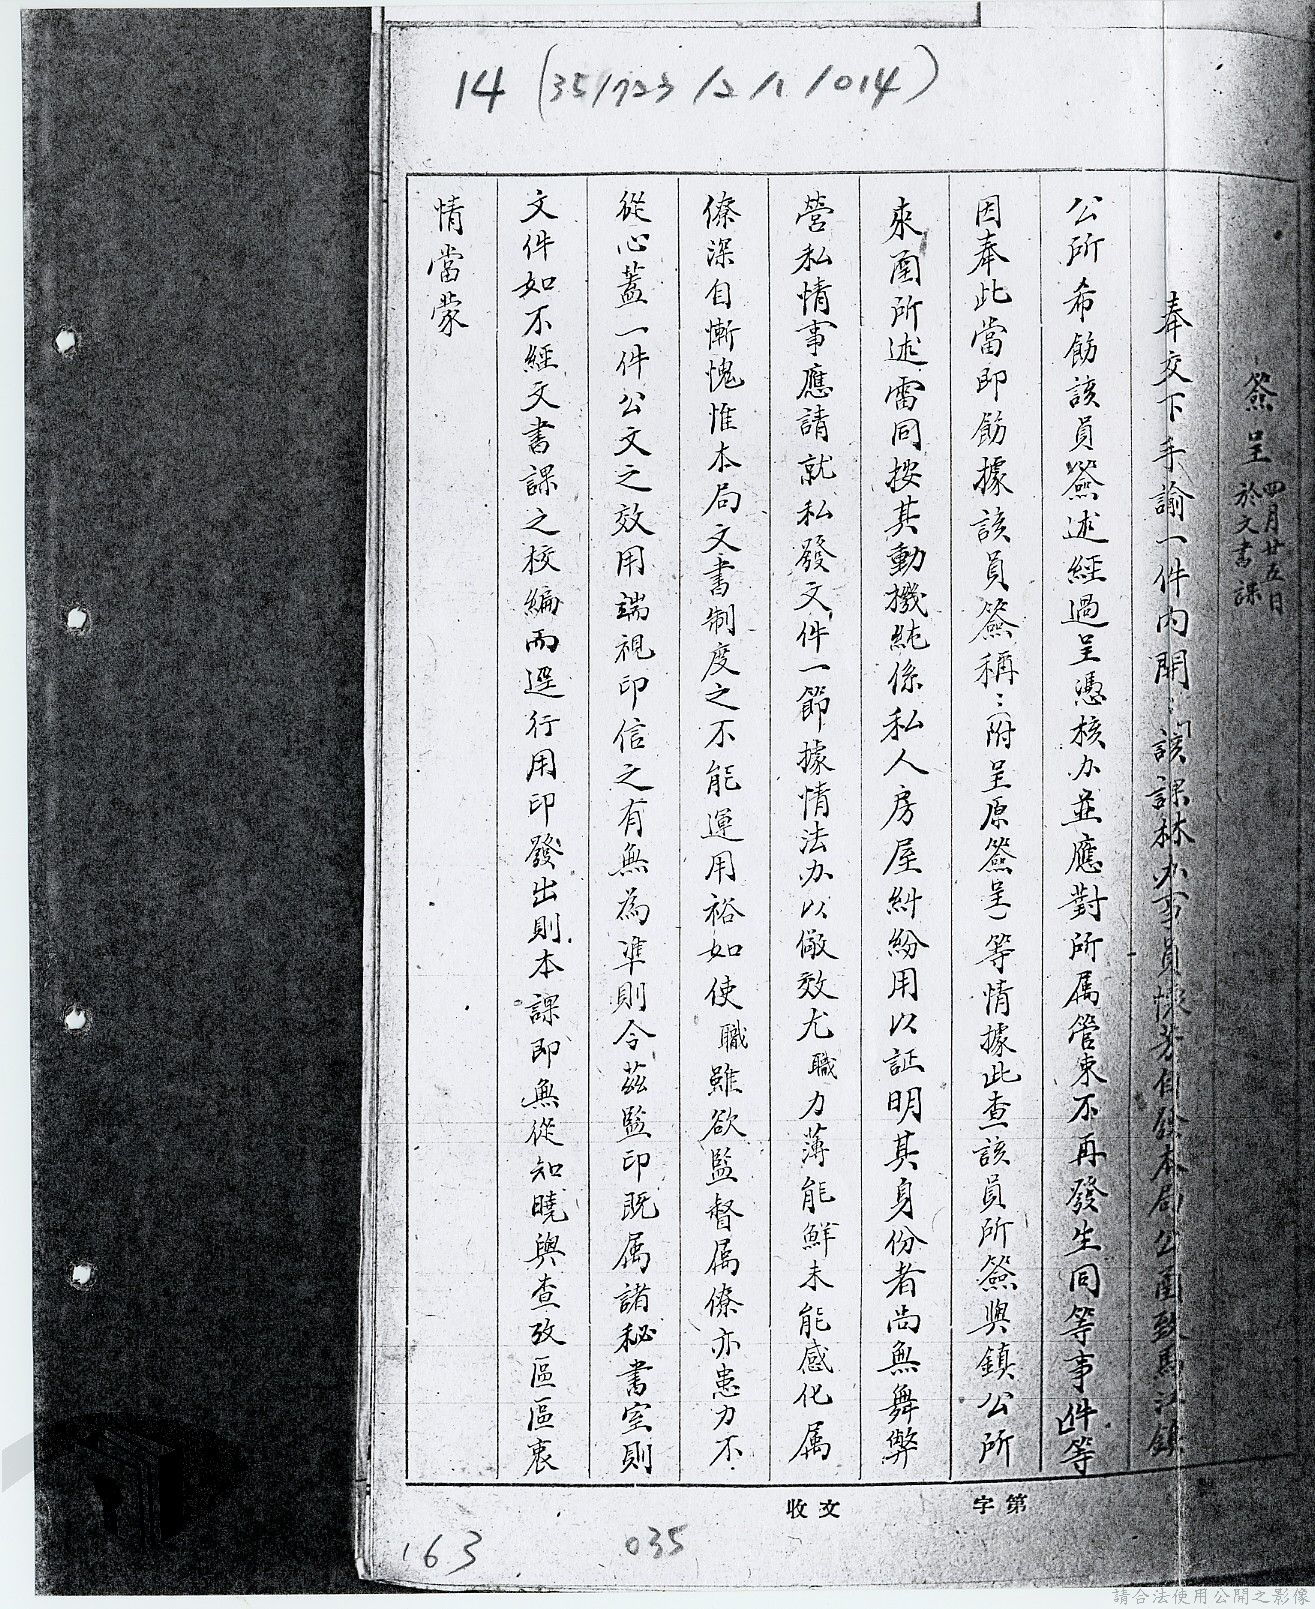 14 (35/723/2/1/014)
簽呈 四月廿五日
於文書課
奉交下手諭一件內開：「該課林办事員懷芳自發本局公函致馬江鎮
公所希飭該員簽述經過呈憑核办並應對所属管束不再發生同等事件」等
因奉此當即飭據該員簽稱：（附呈原簽呈）等情據此查該員所簽與鎮公所
來函所述雷同按其動機純係私人房屋糾紛用以証明其身份者尚無舞弊
營私情事應請就私發文件一節據情法办以儆效尤職力薄能鮮未能感化属
僚深自慚愧惟本局文書制度之不能運用裕如使職雖欲監督属僚亦患力不
從心蓋一件公文之效用端視印信之有無為準則今茲監印既属諸秘書室則
文件如不經文書課之校編而逕行用印發出則本課即無從知曉與查攷區區衷
情當蒙
第字
文收
163
035
請合法使用公開之影像